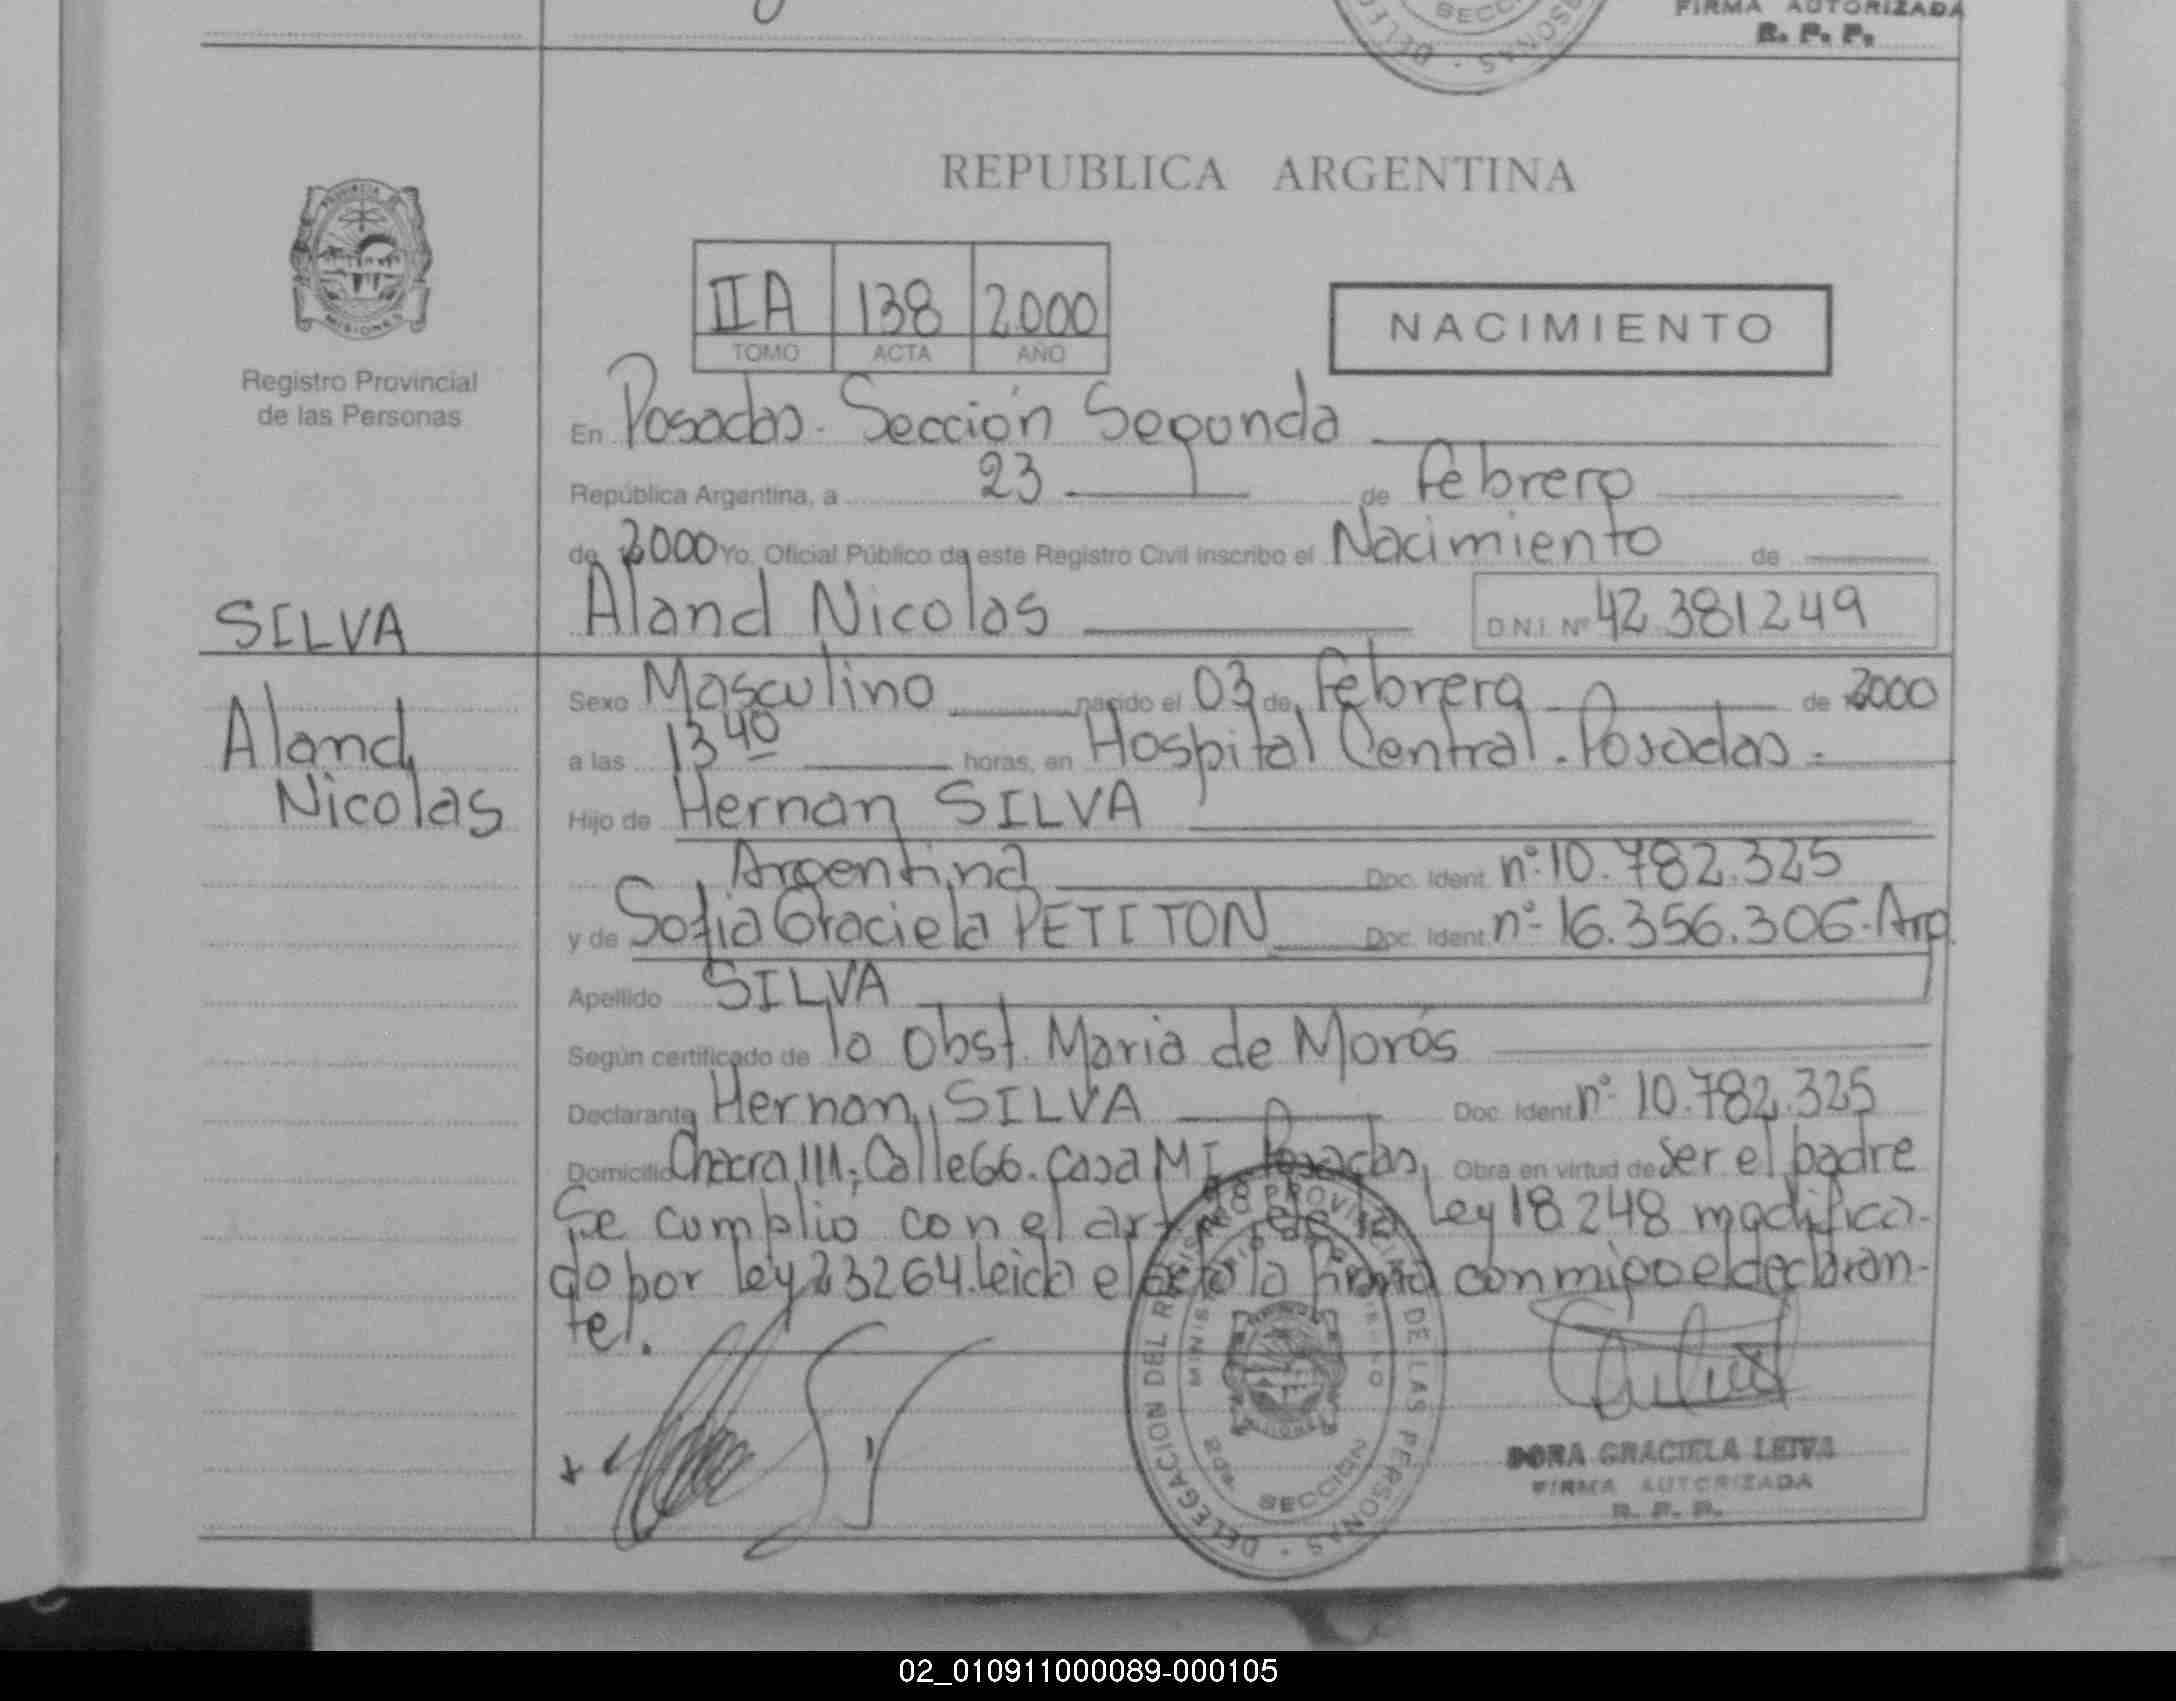 SECC
DELE
SONAS
FIRMA AUTORIZADA
R. P. P.
PROVINCIA
MISIONES
Registro Provincial
de las Personas
REPUBLICA ARGENTINA
IIA 138 2000
TOMO ACTA AÑO
NACIMIENTO
En Posadas. Sección Segunda
República Argentina, a 23 de febrero
de 2000 Yo, Oficial Público de este Registro Civil inscribo el Nacimiento de
SILVA
Aland Nicolas D.N.I. Nº 42.381249
Aland
Nicolas
Sexo Masculino nacido el 03 de febrero de 2000
a las 13 40 horas, en Hospital Central. Posadas.
Hijo de Hernan SILVA
Argentina Doc. Ident. nº 10.782.325
y de Sofia Graciela PETITON Doc. Ident. nº 16.356.306. Arg.
Apellido SILVA
Según certificado de la Obst. Maria de Morós
Declarante Hernan SILVA Doc. Ident. nº 10.782.325
Domicilio Chacra 111; Calle 66. casa MI Posadas Obra en virtud de ser el padre
Se cumplió con el art de la Ley 18.248 modifica-
do por ley 23264. Leida el acta la firma conmigo el declaran-
te.
DELEGACION DEL REGISTRO PROVINCIAL DE LAS PERSONAS
2da. SECCION
DORA GRACIELA LEIVA
FIRMA AUTORIZADA
R. P. P.
02_010911000089-000105